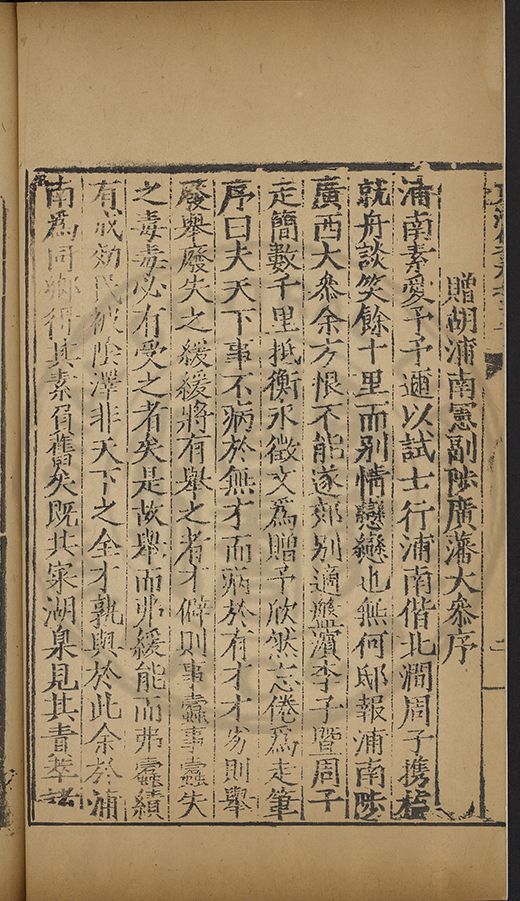 贈胡浦南憲副陟廣藩大叅序
浦南素愛予予邇以試士行浦南偕北澗周子携榼
就舟談笑餘十里而别情戀戀也無何邸報浦南陟
廣西大叅余方恨不能遂郊别適盤濱李子暨周子
走簡數千里抵衡永徵文爲贈予欣然忘倦爲走筆
序曰夫天下事不病於無才而病於有才才劣則舉
廢舉廢失之緩緩將有舉之者才僻則事蠹事蠹失
之毒毒必有受之者矣是故舉而弗緩能而弗蠹績
有成効民被隂澤非天下之全才孰與於此余於浦
南爲同鄉得其素舊矣既其家湖臬見其萃諸